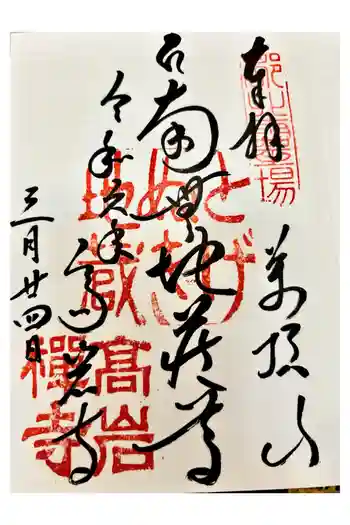 奉拝
萬頂山
南無地蔵尊
令和
年
高岩寺
三月廿四日
霊場
とげ
ぬき
地蔵
高岩
禪寺